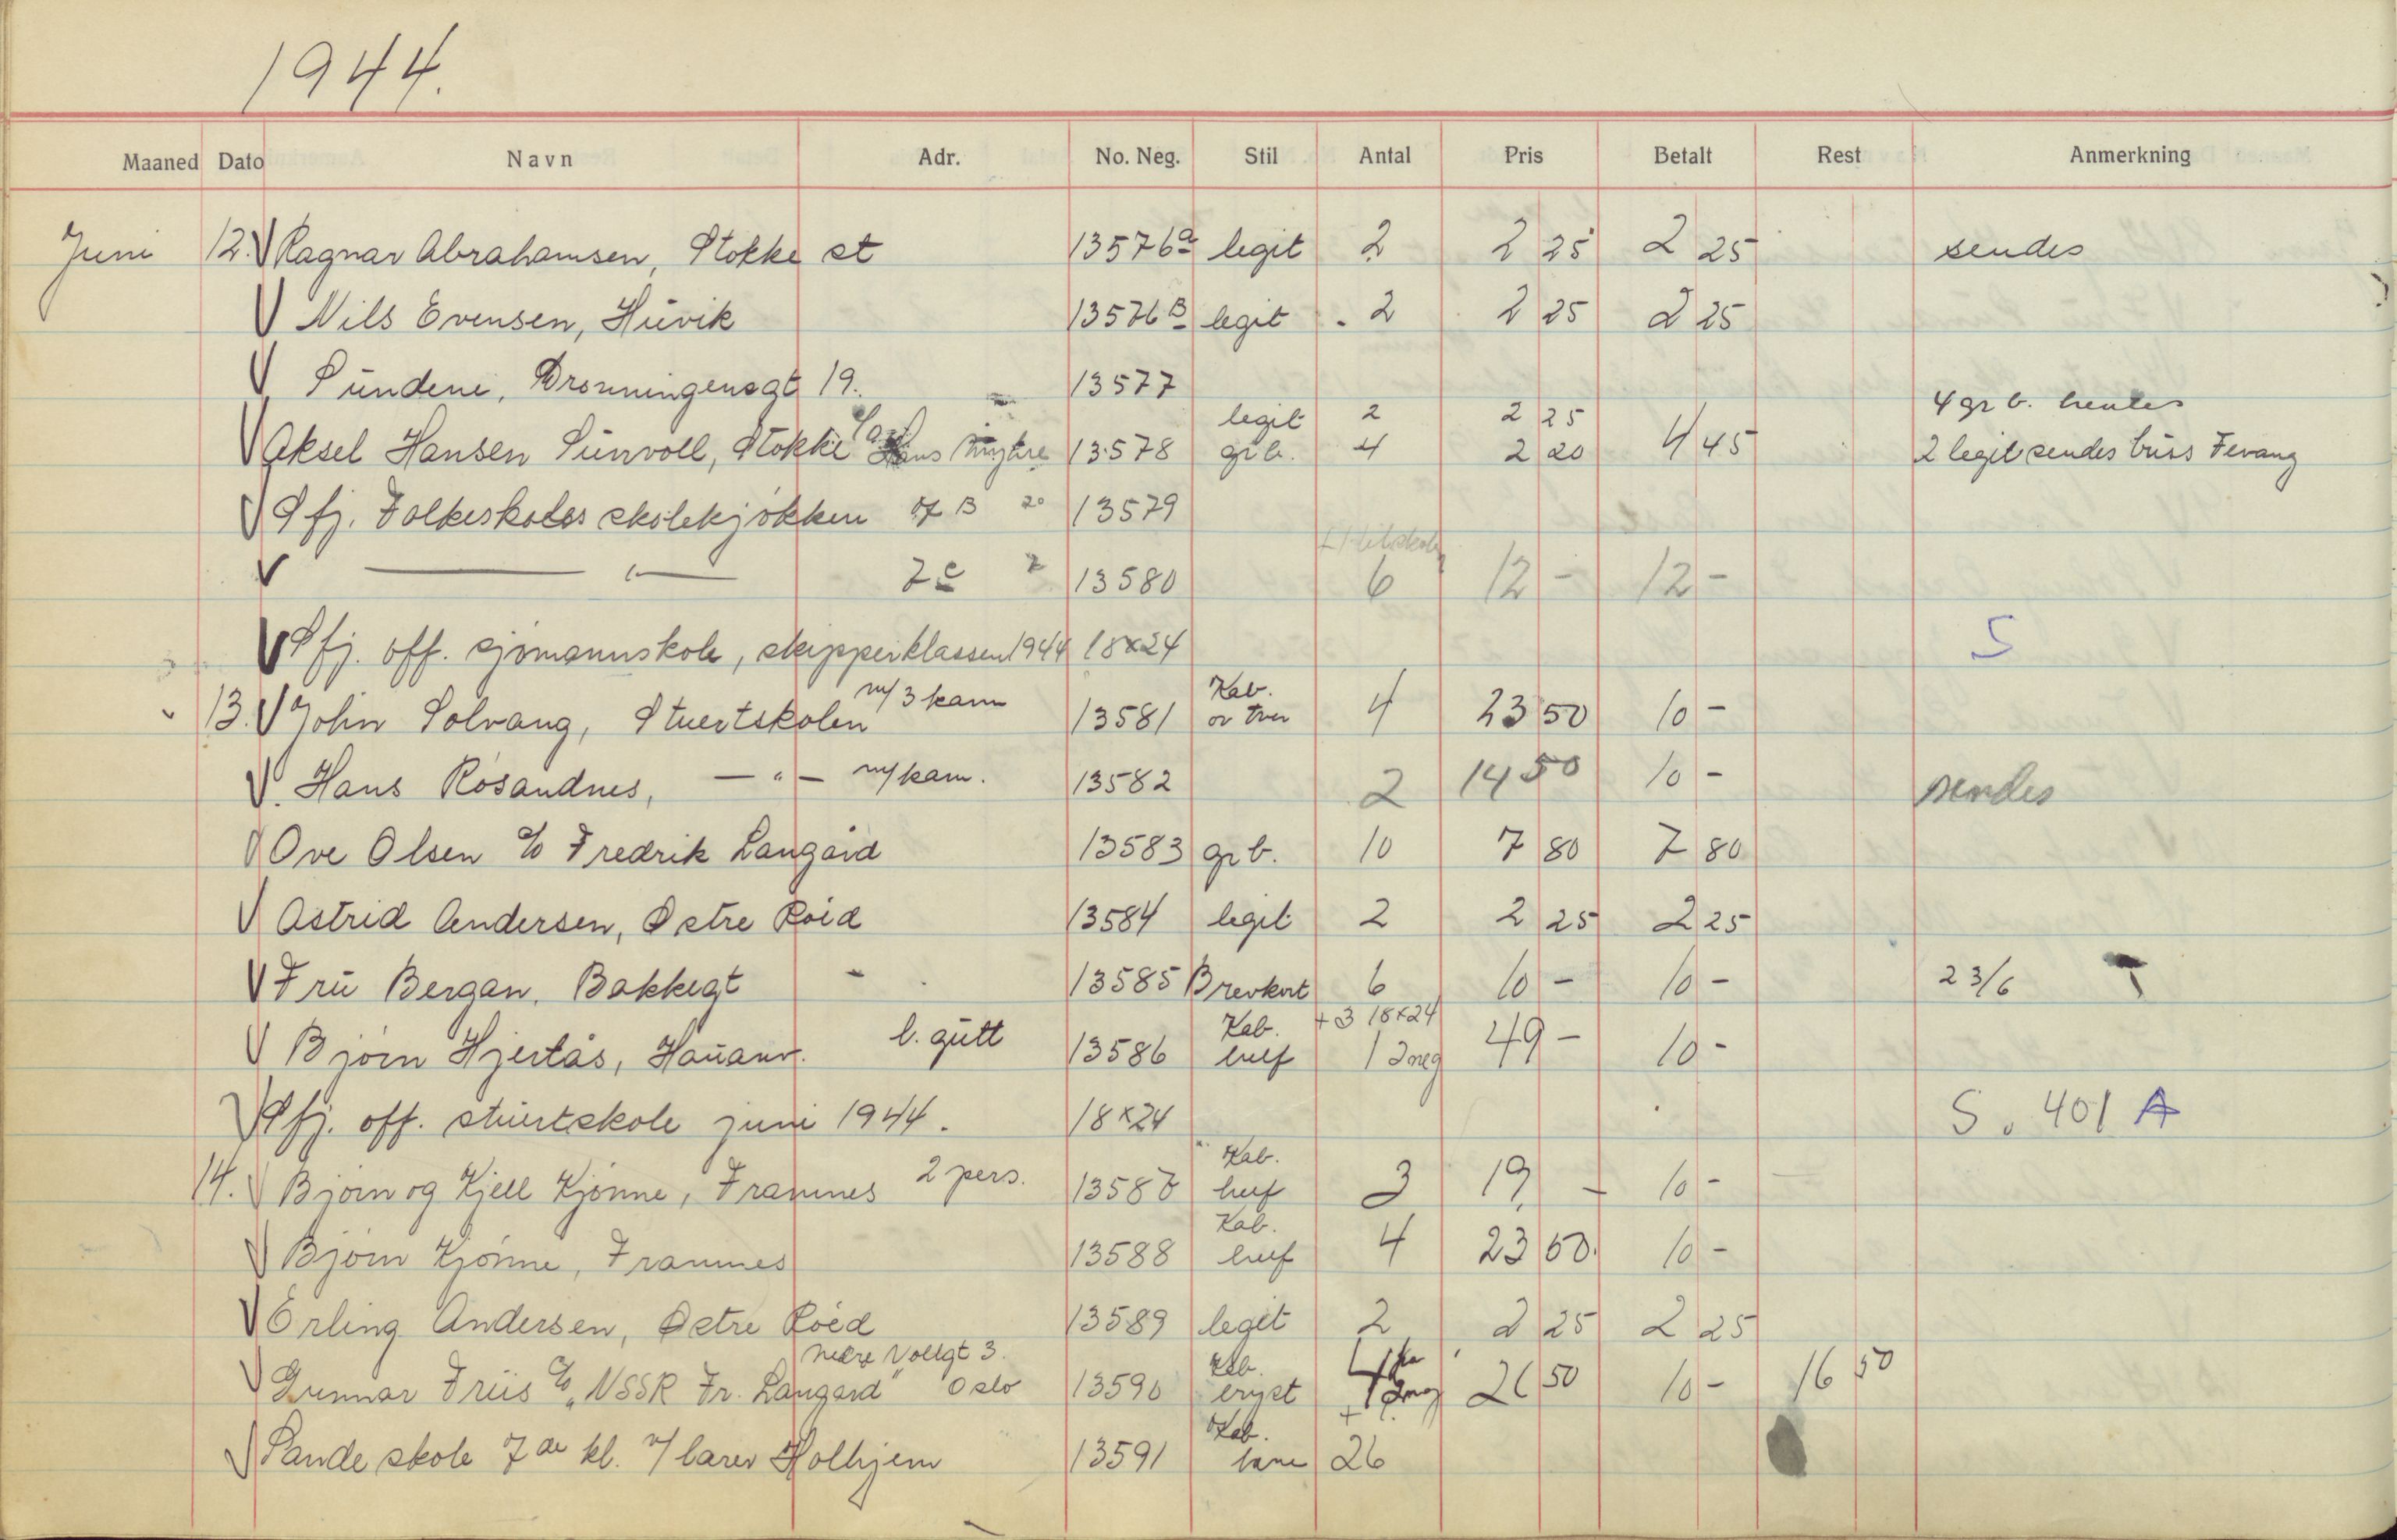 1944.
Maaned Dato Navn Adr. No. Neg. Stil Antal Pris Betalt Rest Anmerkning
Juni 12. Ragnar Abrahamsen, Stokke st 13576a legit 2 2 25 2 25 sendes
Nils Evensen, Huvik 13576B legit 2 2 25 2 25
Sundene, Dronningensgt 19. 13577
legit 2 2 25 4 gr b. hentes
Aksel Hansen Sunvoll, Stokke 13578 gr b. 4 2 20 4 45 2 legit sendes buss Fevang
Sfj. Folkeskoles skolekjøkken 7 B 20 13579
— " — 7c 13580 6 12 - 12 -
Sfj. off. sjømannskole, skipperklassen 1944 18x24 S
m/3 kam Kab.
13. John Solvang, Stuertskolen 13581 ov tver 4 23 50 10 -
Hans Rosandnes, — " — m/kam. 13582 2 14 50 10 - sendes
Ove Olsen c/o Fredrik Langård 13583 gr b. 10 7 80 7 80
Astrid Andersen, Østre Röid 13584 legit 2 2 25 2 25
Fru Bergan, Bakkegt 13585 Brevkort 6 10 - 10 - 23/6 T
Kab. + 3 18x24
Bjørn Hjertås, Hauanv. l. gutt 13586 huf 1 2neg 49 - 10 -
Sfj. off. stuertskole juni 1944. 18x24 S. 401 A
Kab.
14. Bjørn og Kjell Kjønne, Framnes 2 pers. 13587 huf 3 19 - 10 -
Kab.
Bjørn Kjønne, Framnes 13588 huf 4 23 50 10 -
Erling Andersen, Østre Röed 13589 legit 2 2 25 2 25
nedre Vollgt 3. Kab.
Gunnar Friis c/o "NSSR Fr. Langård" Oslo 13590 bryst 26 50 10 - 16 50
Kab.
Sande skole 7de kl. v/ lærer Holhjem 13591 26